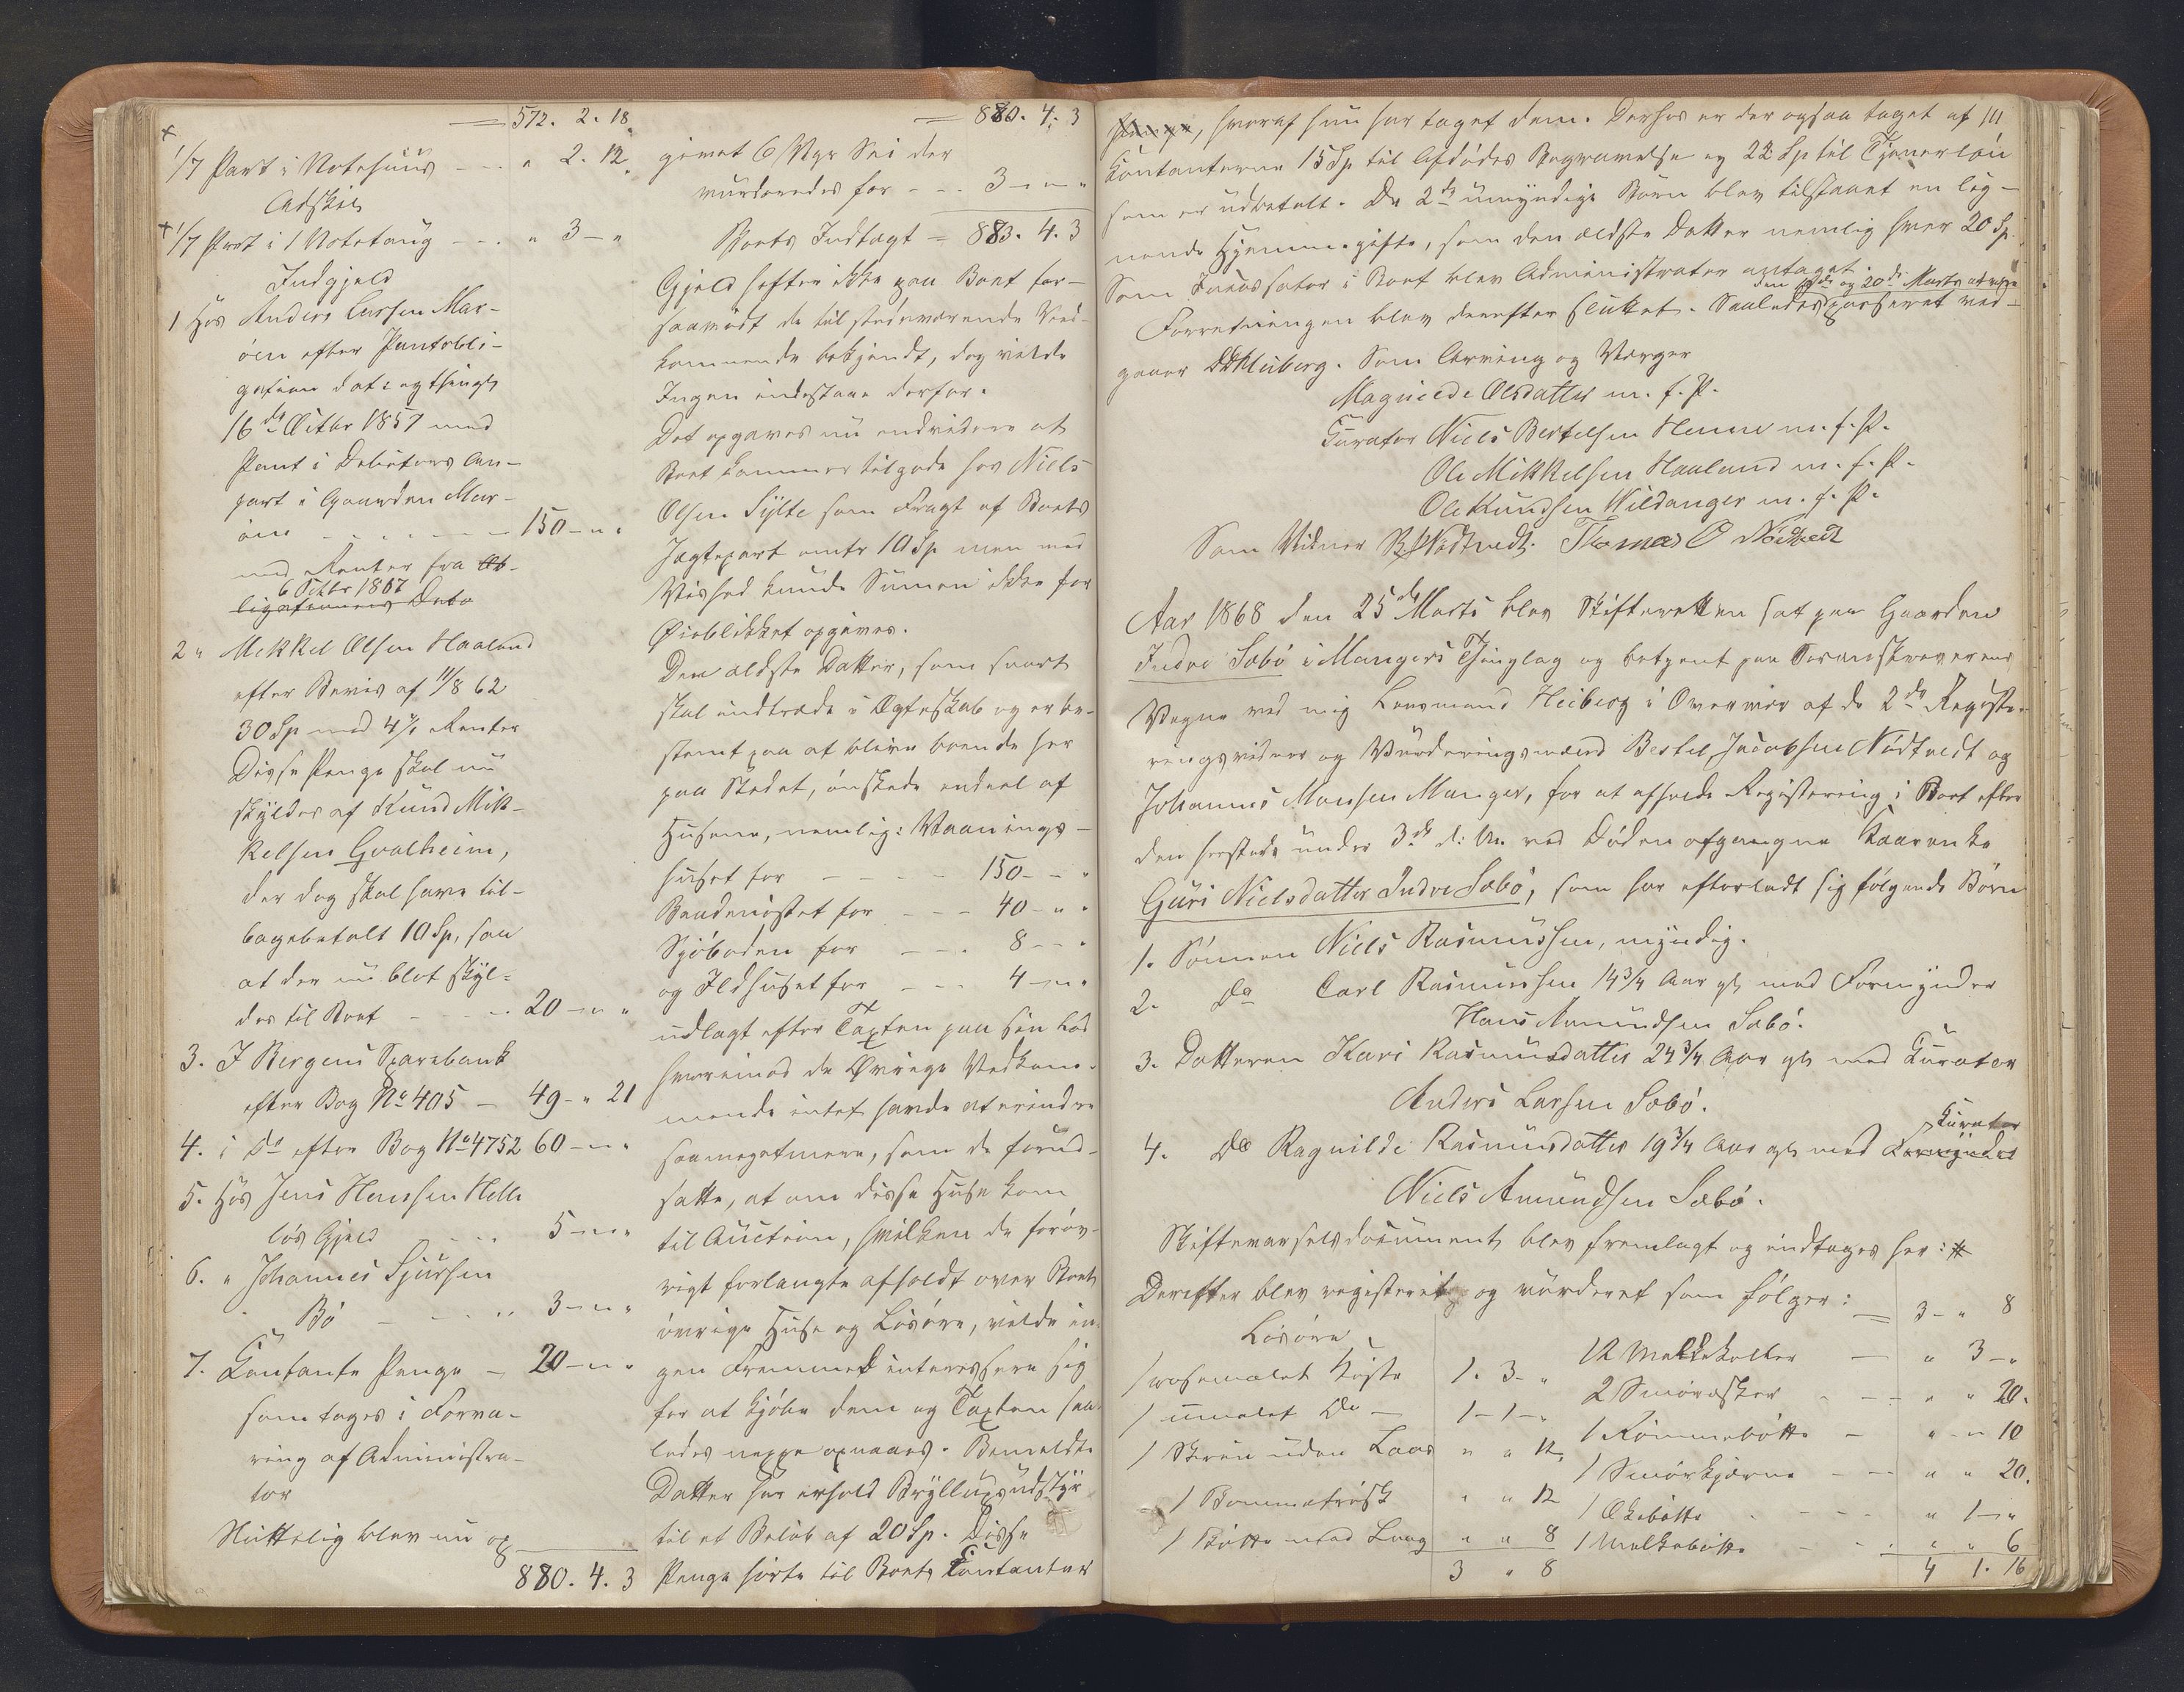 = 572. 2. 18
+
1/7 Part i Notehuus - - - " 2. 12
Adskil
+ 1/7 Part i 1 Notetaug - - - " 3 - "
Indgjeld
1 Hos Anders Larsen Mar-
øen efter Pantobli-
gation dat: og thingl:
16de Octbr 1857 med
Pant i Debitors An-
part i Gaarden Mar-
øen - - - - - - 150 - " - "
med Renter fra Ob-
6 Octbr 1867
ligationens Dato
2 " Mikkel Olsen Haaland
efter Bevis af 11/8 62
30 Sp med 4 % Renter
Disse Penge skal nu
skyldes af Knud Mik-
kelsen Gvalheim,
der dog skal have til-
bagebetalt 10 Sp, saa
at der nu blot skyl-
des til Boet - - - - 20 - " - "
3. I Bergens Sparebank
efter Bog No 405 - 49 - " 21
4. i Do efter Bog No 4752 60 - " - "
5. Hos Jens Hansen Helle
løs Gjeld - - - 5 - " - "
6. " Johannes Sjursen
Bø - - - - - 3 - " - "
7. Contante Penge - 20 - " - "
som tages i Forva-
ring af Administra-
tor
Skittelig blev nu op
880. 4. 3
= 880. 4. 3
givet 6 Vgr Sei der
vurderedes for - - - 3 - " - "
Boets Indtægt = 883. 4. 3
Gjeld hefter ikke paa Boet for-
saavidt de tilstedeværende Ved-
kommende bekjendt, dog vilde
Ingen indestaae derfor.
Det opgaves nu endvidere at
Boet kommer tilgode hos Niels
Olsen Sylte som Fragt af Boets
Jagtepart omtr 10 Sp men med
Vished kunde Summen ikke for
Øieblikket opgives.
Den ældste Datter, som snart
skal indtræde i Ægteskab og er be-
stemt paa at blive boende her
paa Stedet, ønskede endeel af
Husene, nemlig: Vaanings-
huset for - - - - - 150 - - "
Baadenøstet for - - - 40 - " "
Sjøboden for - - - 8 - - "
og Ildhuset for - - - 4 - " - "
udlagt efter Taxten paa sin Lod
hvorimod de Øvrige Vedkom-
mende intet havde at erindre
saameget mere, som de forud-
satte, at om disse Huse kom
til Auction, hvilken de forøv-
rigt forlangte afholdt over Boets
øvrige Huse og Løsøre, vilde in-
gen Fremmed interessere sig
for at kjøbe dem og Taxten saa-
ledes neppe opnaaes. Bemeldte
Datter har erholdt Bryllupsudstyr
til et Beløb af 20 Sp. Disse
Penge hørte til Boets Contanter
penge, hvoraf hun har taget dem. Derhos er der ogsaa taget af 111
Contanterne 15 Sp til Afdødes Begravelse og 22 Sp til Tjenerløn
som er udbetalt. De 2de umyndige Børn blev tilstaaet en lig-
nende Hjemmegifte, som den ældste Datter nemlig hver 20 Sp.
Som Incassator i Boet blev Administrator antaget
den og 20de Marts
Forretningen blev derefter sluttet. Saaledes passeret ved-
gaaer Heiberg. Som Arving og Værger
Magnilde Olsdatter m. f. P.
Curator Niels Bertelsen Henne m. f. P.
Ole Mikkelsen Haaland m. f. P.
Ole Knudsen Vildanger m. f. P.
Som Vidner B J Nødtvedt. Thomas O Nødtvedt
Aar 1868 den 25de Marts blev Skifteretten sat paa Gaarden
Indre Sæbø i Mangers Thinglag og betjent paa Sorenskriverens
Vegne ved mig Lensmand Heiberg i Overvær af de 2de Registe-
ringsvidner og Vurderingsmænd Bertel Jacobsen Nødtvedt og
Johannes Monsen Manger, for at afholde Registrering i Boet efter
den herstede under 3de d: M. ved Døden afgangne Kaarenke
Guri Nielsdatter Indre Sæbø, som har efterladt sig følgende Børn
1. Sønnen Niels Rasmussen, myndig.
2. Do Carl Rasmussen 14 3/4 Aar gl: med Formynder
Hans Amundsen Sæbø.
3. Datteren Kari Rasmusdatter 24 3/4 Aar gl: med Curator
Anders Larsen Sæbø.
Curator
4. Do Ragnilde Rasmusdatter 19 3/4 Aar gl: med Formynder
Niels Amundsen Sæbø.
Skiftevarselsdocument blev fremlagt og indtages her: #
Derefter blev registeret og vurderet som følger:
Løsøre
1 rosemalet Kiste 1. 3 - "
1 umalet Do - 1 - 1 - "
1 Skrin uden Laas " " 12
1 Bommetrøsk " " 12
1 Bøtte med Laag " " 8
3 " 8
= 3 - " 8
12 Melkekoller - " 3 - "
2 Smøræsker - - - " " 20.
1 Rømmebøtte - " - " 10
1 Smørkjærne - - - " " 20.
1 Ølebøtte - - - - " 1 - "
1 Melkebøtte - - - " " 6
4 1. 16